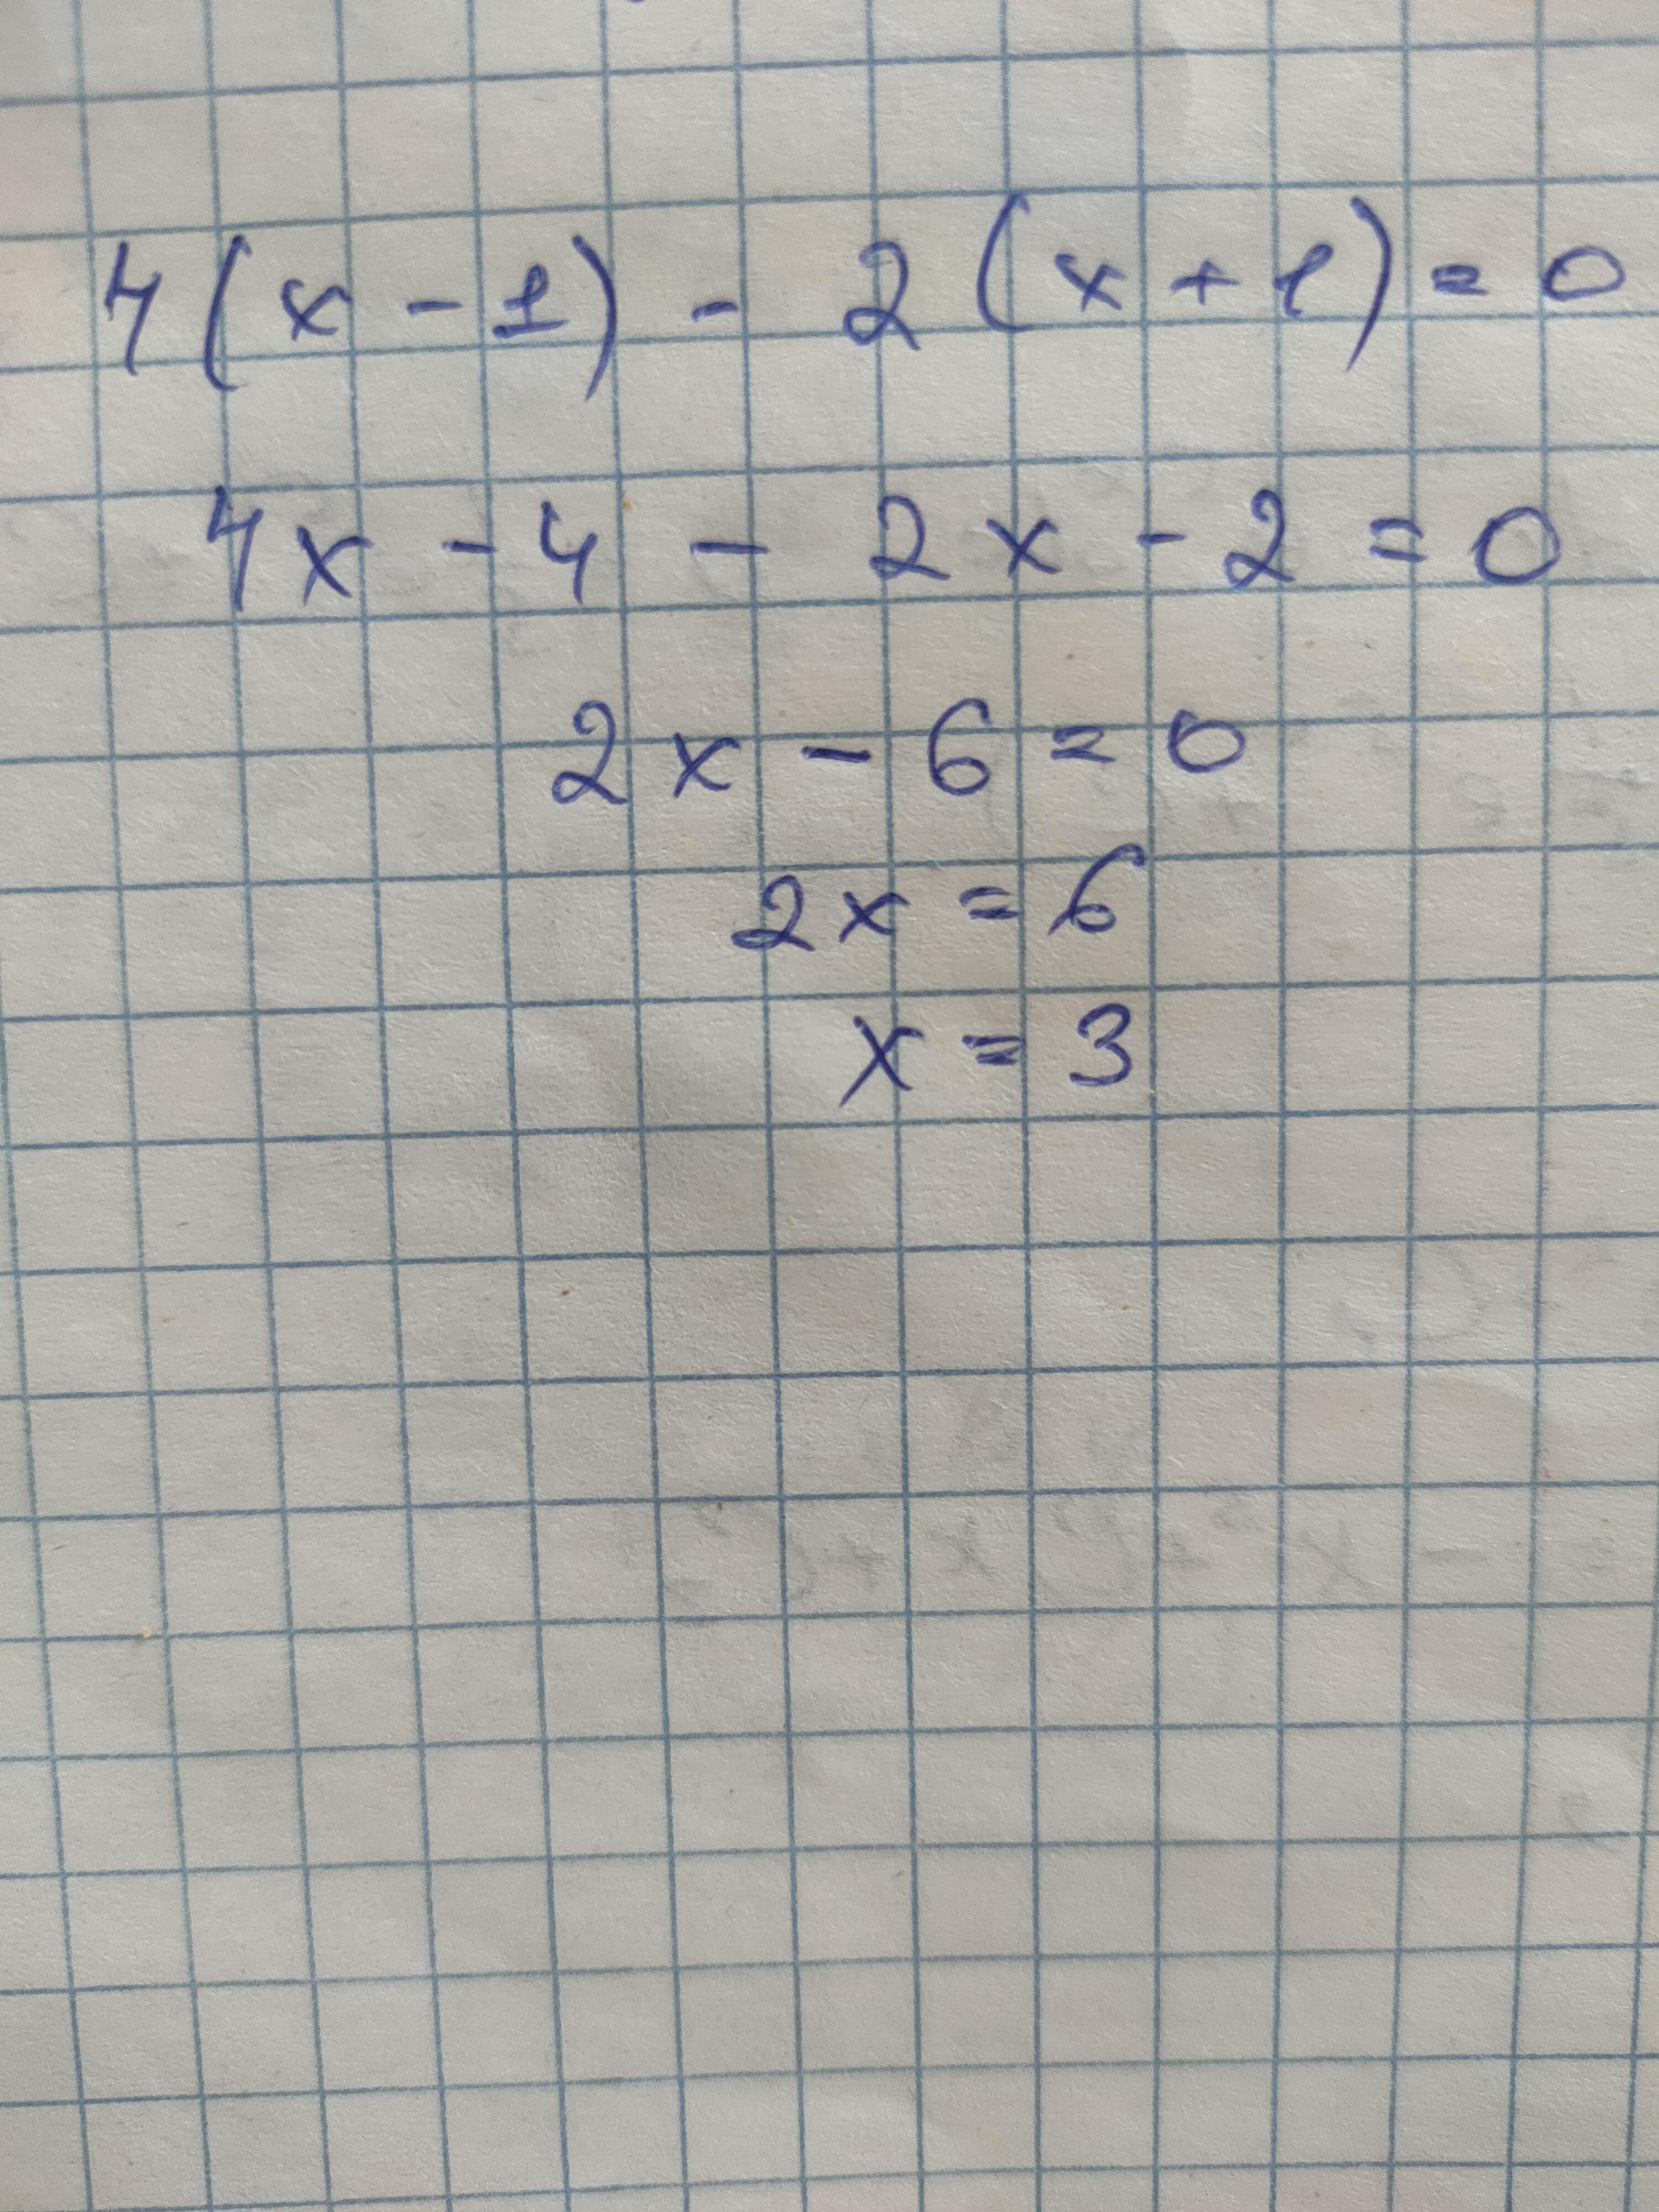 4(x-1) - 2(x+1)=0
4x-4 - 2x-2=0
2x-6=0
2x=6
x=3